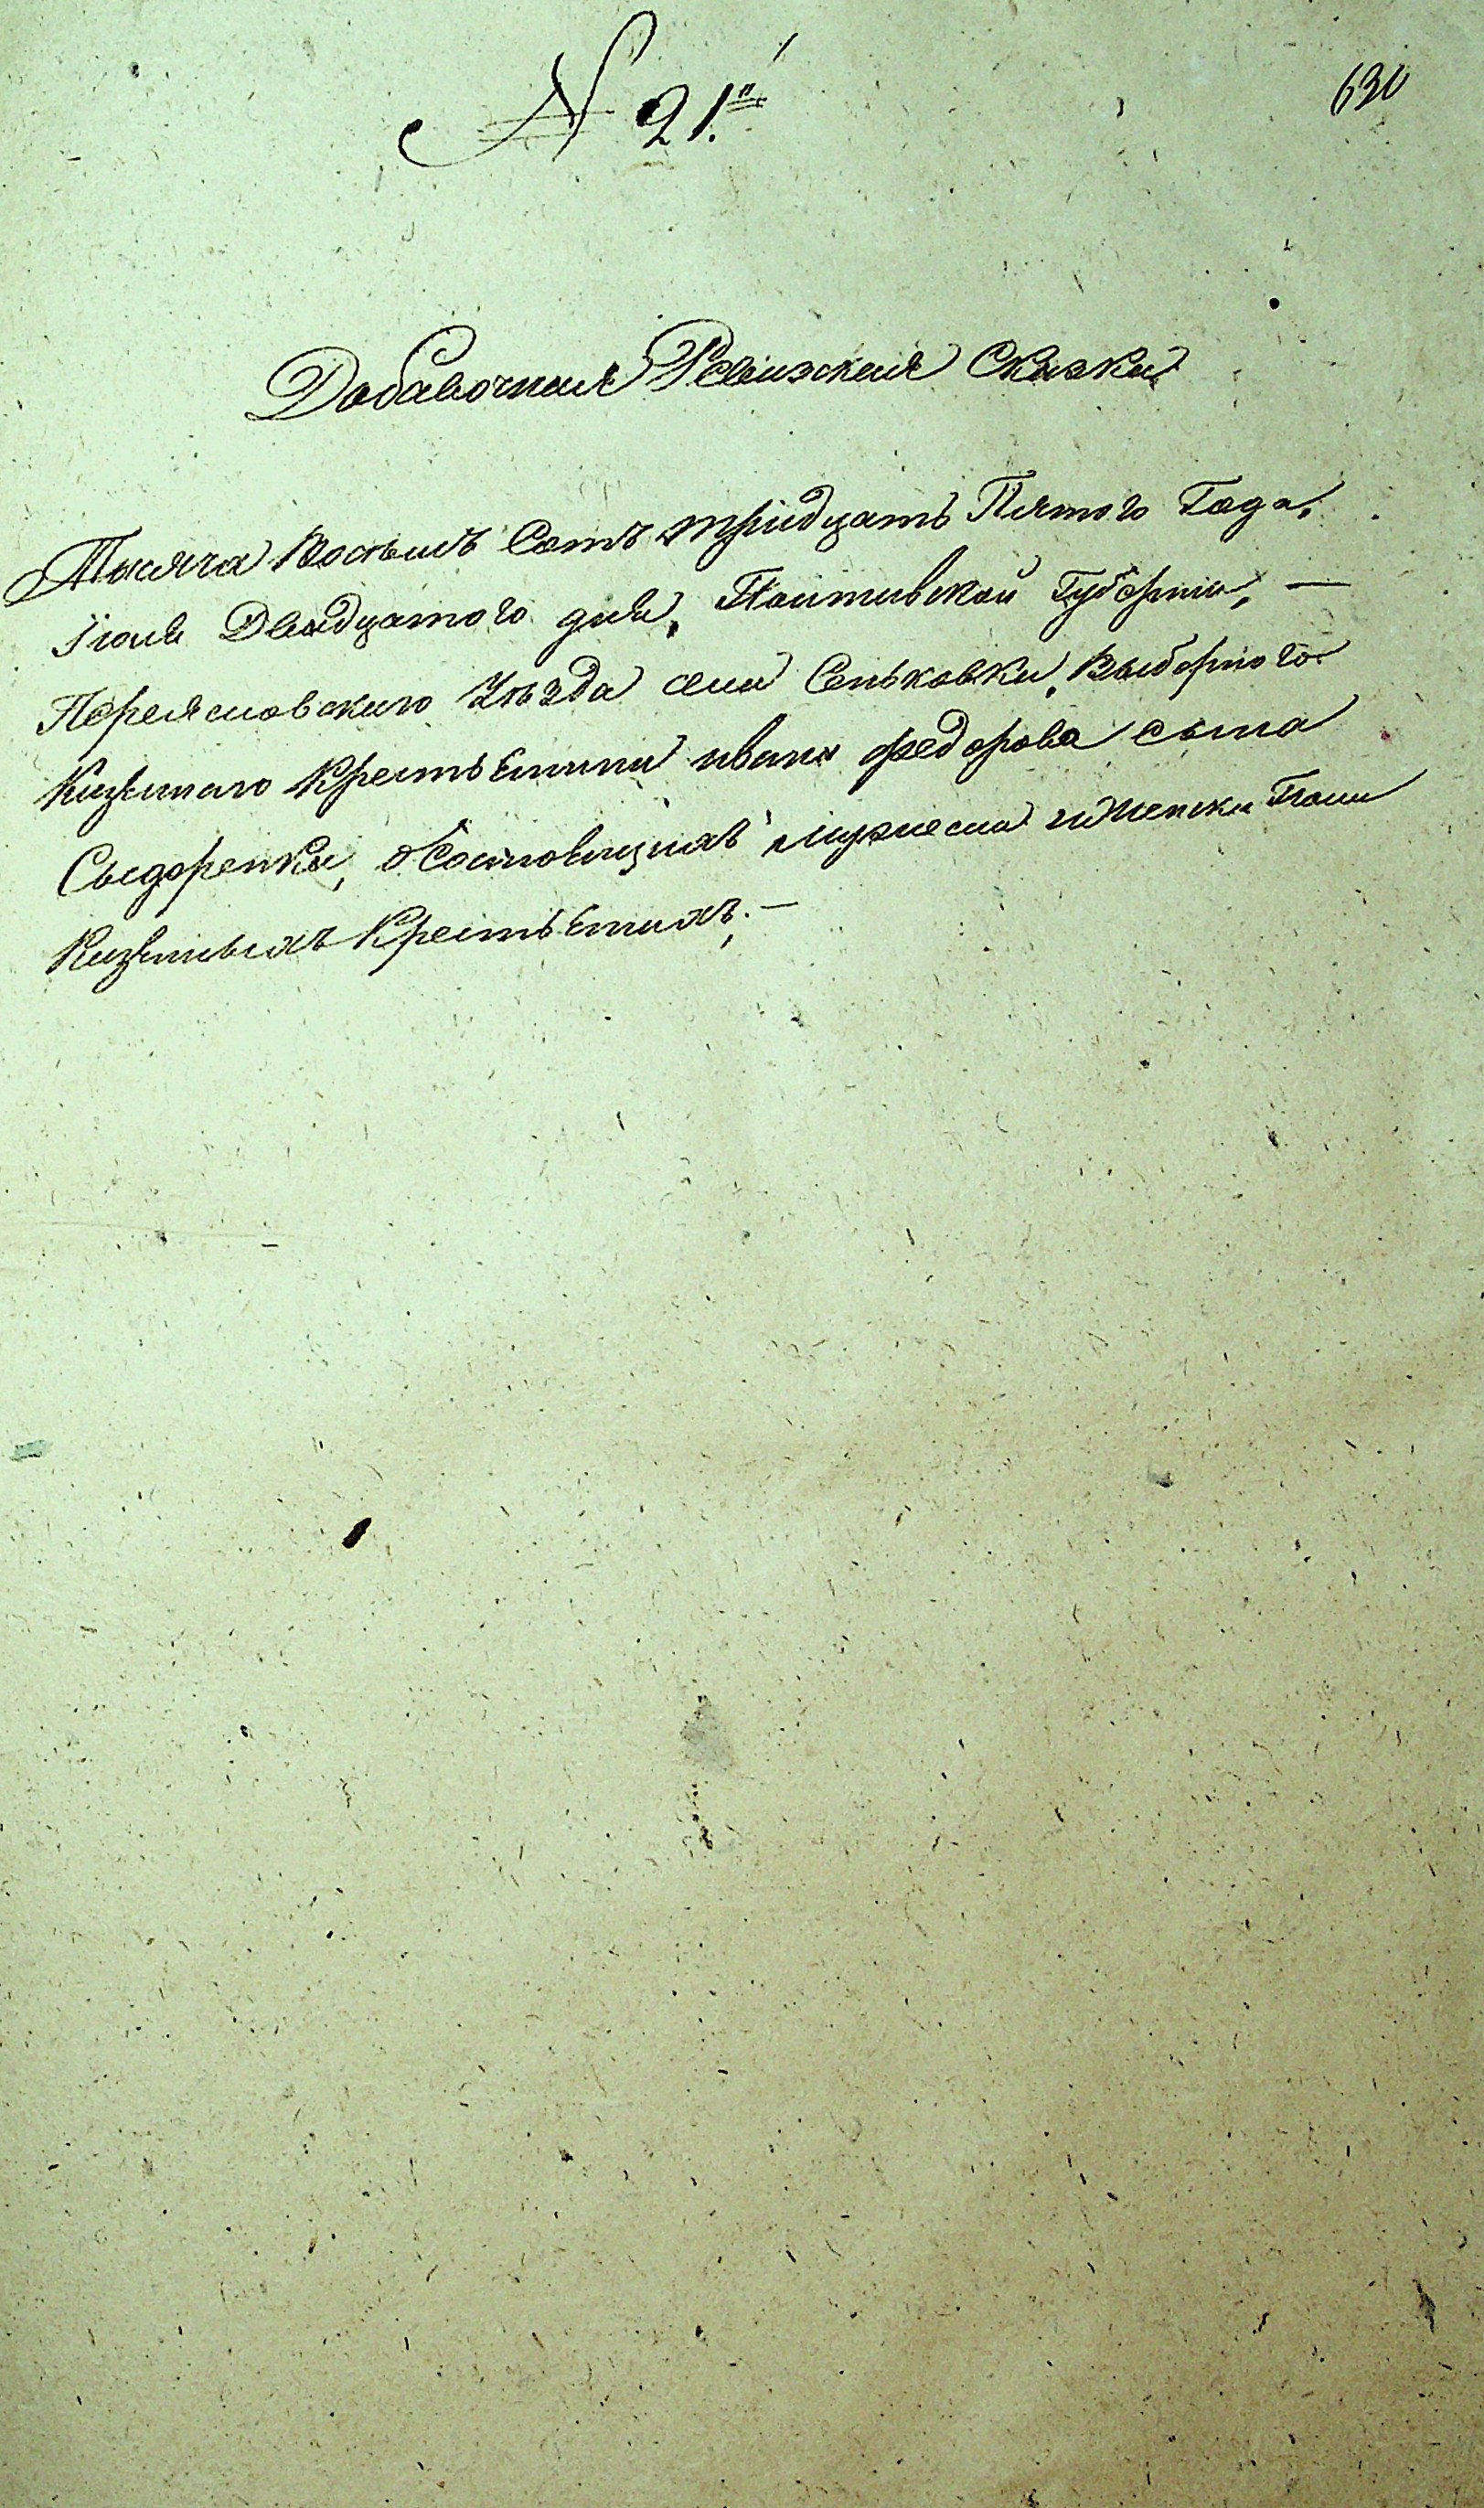 № 21й
630
Добавочная Ревизская Сказка
Тысяча Восемь Сотъ тридцать Пятого Года,
Іюля Двадцатого дня, Полтавской Губерніи, —
Переясловского Уѣзда села Сеньковки, Выборного
Казенного Крестьянина ивана федорова сына
Сыдоренка, о Состоящихъ мужеска и Женска Пола
Казенныхъ Крестьянахъ. —